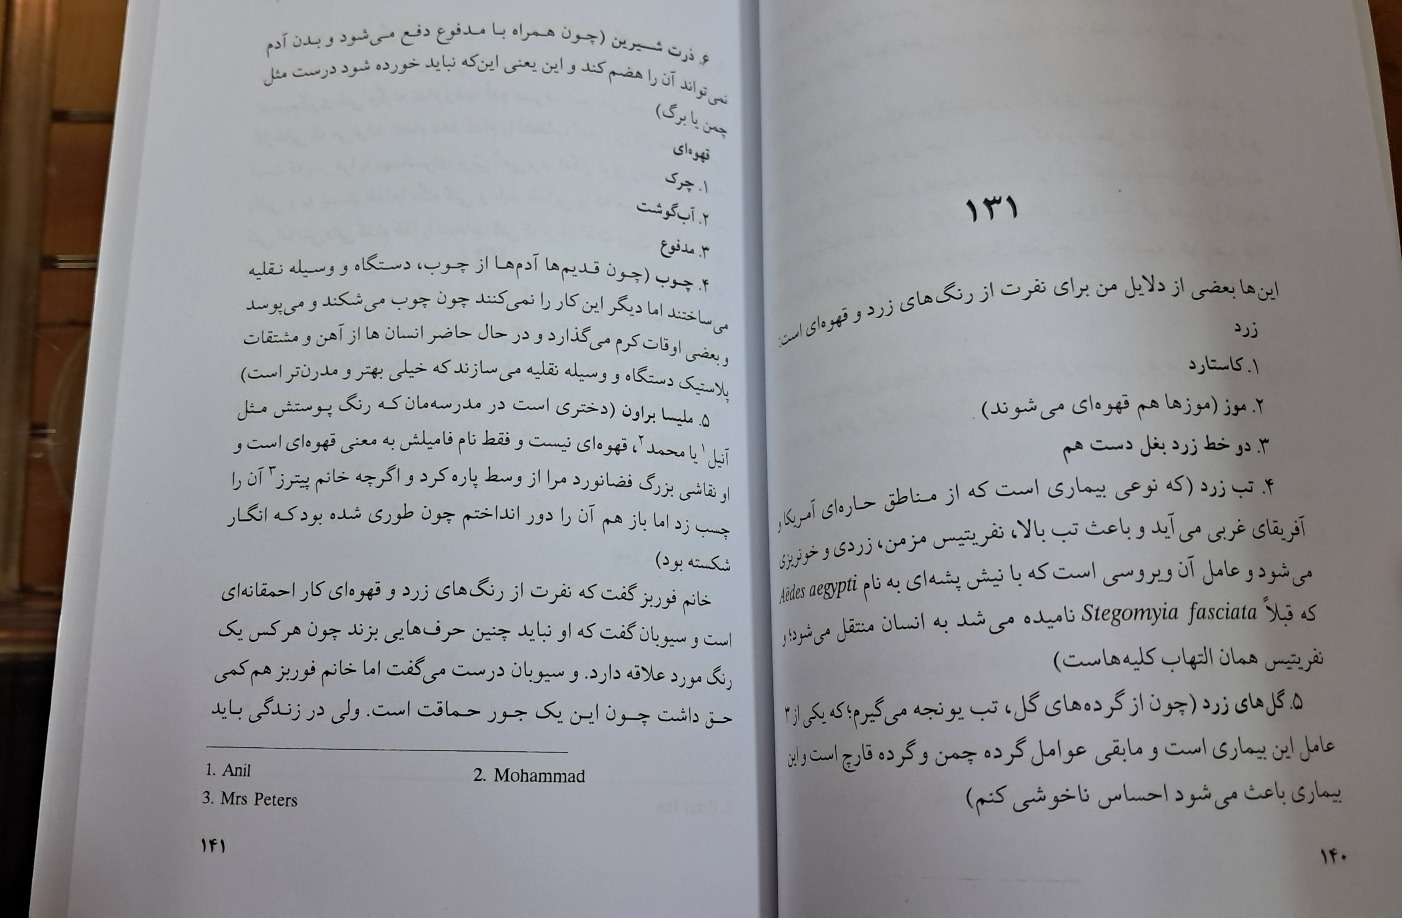 ۱۳۱
این‌ها بعضی از دلایل من برای نفرت از رنگ‌های زرد و قهوه‌ای است:
زرد
۱. کاستارد
۲. موز (موزها هم قهوه‌ای می‌شوند)
۳. دو خط زرد بغل دست هم
۴. تب زرد (که نوعی بیماری است که از مناطق حاره‌ای آمریکا و
آفریقای غربی می‌آید و باعث تب بالا، نفریتیس مزمن، زردی و خونریزی
می‌شود و عامل آن ویروسی است که با نیش پشه‌ای به نام Aëdes aegypti
که قبلاً Stegomyia fasciata نامیده می‌شد به انسان منتقل می‌شود؛ و
نفریتیس همان التهاب کلیه‌هاست)
۵. گل‌های زرد (چون از گرده‌های گل، تب یونجه می‌گیرم؛ که یکی از ۳
عامل این بیماری است و مابقی عوامل گرده چمن و گرده قارچ است و این
بیماری باعث می‌شود احساس ناخوشی کنم)
۱۴۰
۶. ذرت شیرین (چون همراه با مدفوع دفع می‌شود و بدن آدم
نمی‌تواند آن را هضم کند و این یعنی این‌که نباید خورده شود درست مثل
چمن یا برگ)
قهوه‌ای
۱. چرک
۲. آب‌گوشت
۳. مدفوع
۴. چوب (چون قدیم‌ها آدم‌ها از چوب، دستگاه و وسیله نقلیه
می‌ساختند اما دیگر این کار را نمی‌کنند چون چوب می‌شکند و می‌پوسد
و بعضی اوقات کرم می‌گذارد و در حال حاضر انسان ها از آهن و مشتقات
پلاستیک دستگاه و وسیله نقلیه می‌سازند که خیلی بهتر و مدرن‌تر است)
۵. ملیسا براون (دختری است در مدرسه‌مان که رنگ پوستش مثل
آنیل۱ یا محمد۲، قهوه‌ای نیست و فقط نام فامیلش به معنی قهوه‌ای است و
او نقاشی بزرگ فضانورد مرا از وسط پاره کرد و اگرچه خانم پیترز۳ آن را
چسب زد اما باز هم آن را دور انداختم چون طوری شده بود که انگار
شکسته بود)
خانم فوربز گفت که نفرت از رنگ‌های زرد و قهوه‌ای کار احمقانه‌ای
است و سیوبان گفت که او نباید چنین حرف‌هایی بزند چون هر کس یک
رنگ مورد علاقه دارد. و سیوبان درست می‌گفت اما خانم فوربز هم کمی
حق داشت چون این یک جور حماقت است. ولی در زندگی باید
1. Anil 2. Mohammad
3. Mrs Peters
۱۴۱